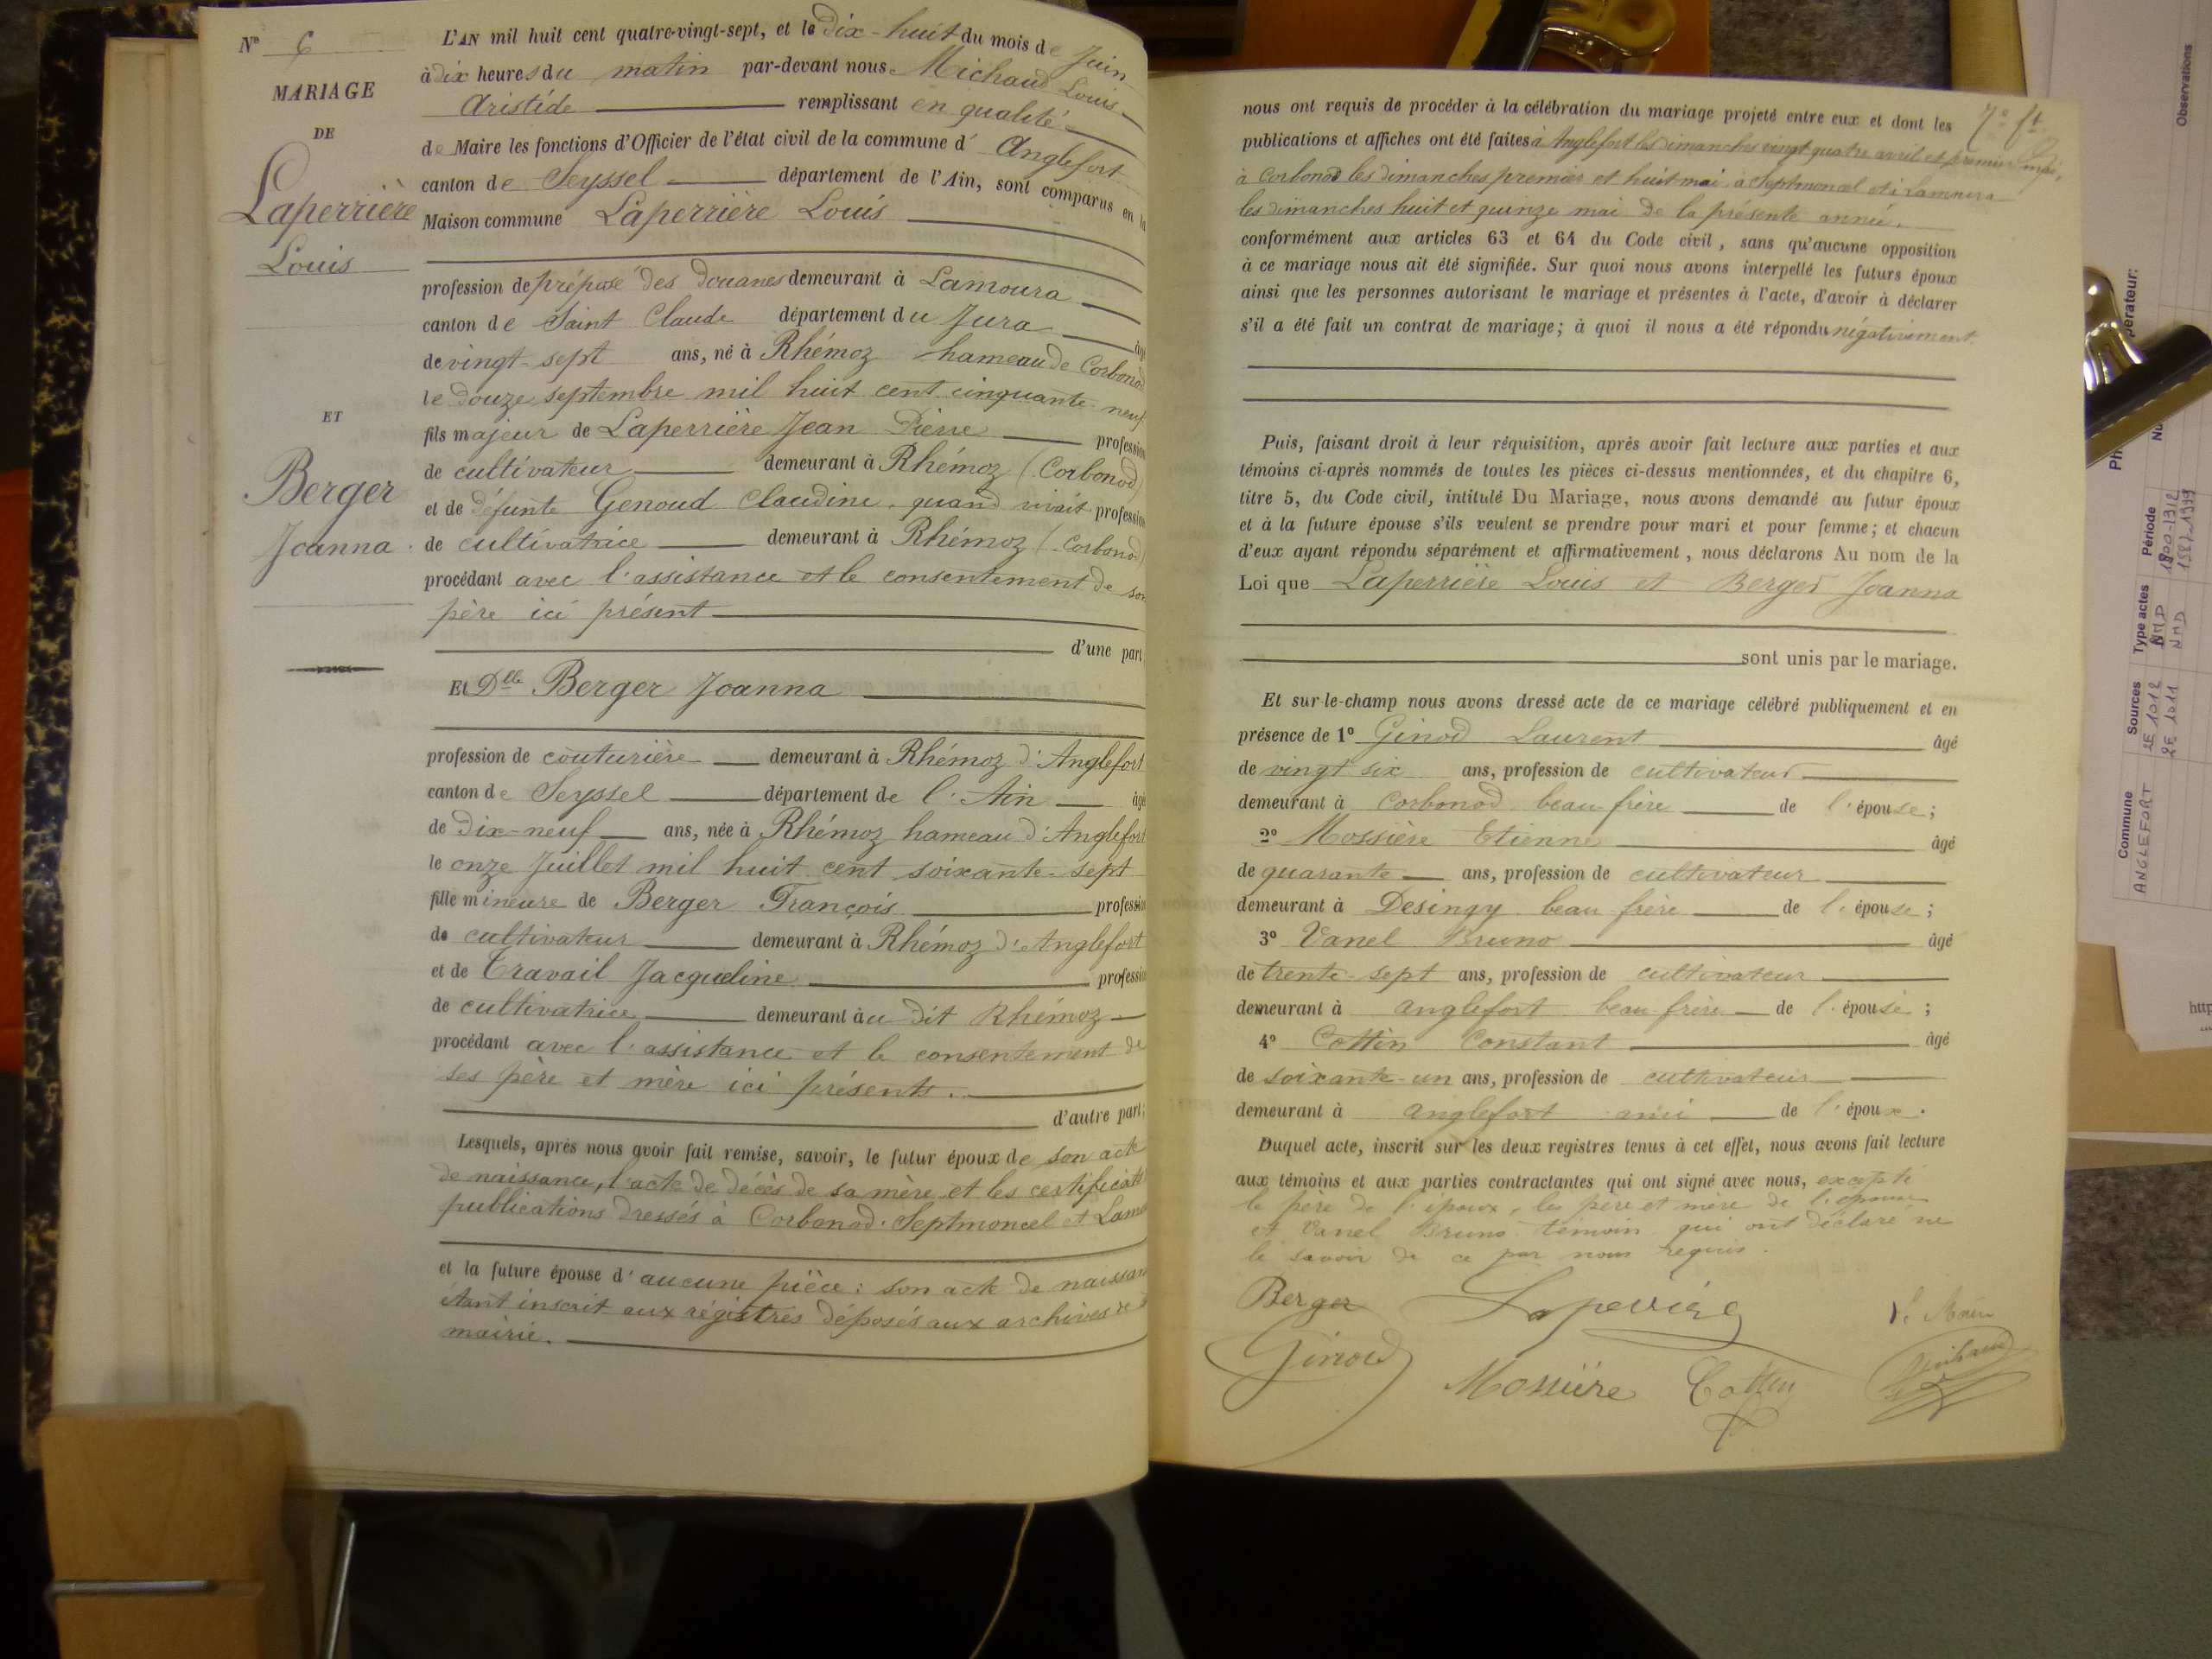 Nº 6
MARIAGE
DE
Laperrière
Louis
ET
Berger
Joanna
L'AN mil huit cent quatre-vingt-sept, et le dix-huit du mois de Juin
à dix heures du matin par-devant nous Michaud Louis
Aristide remplissant en qualité
de Maire les fonctions d'Officier de l'état civil de la commune d' Anglefort
canton de Seyssel département de l'Ain, sont comparus en la
Maison commune Laperrière Louis
profession de préposé des douanes demeurant à Lamoura
canton de Saint Claude département du Jura âgé
de vingt-sept ans, né à Rhémoz hameau de Corbonod
le douze septembre mil huit cent cinquante-neuf
fils majeur de Laperrière Jean Pierre profession
de cultivateur demeurant à Rhémoz (Corbonod)
et de défunte Genoud Claudine, quand vivait profession
de cultivatrice demeurant à Rhémoz (Corbonod)
procédant avec l'assistance et le consentement de son
père ici présent
d'une part;
Et Dlle Berger Joanna
profession de couturière demeurant à Rhémoz d'Anglefort
canton de Seyssel département de l'Ain âgé
de dix-neuf ans, née à Rhémoz hameau d'Anglefort
le onze Juillet mil huit cent soixante-sept
fille mineure de Berger François profession
de cultivateur demeurant à Rhémoz d'Anglefort
et de Travail Jacqueline profession
de cultivatrice demeurant au dit Rhémoz
procédant avec l'assistance et le consentement de
ses père et mère ici présents.
d'autre part;
Lesquels, après nous avoir fait remise, savoir, le futur époux de son acte
de naissance, l'acte de décès de sa mère et les certificats
publications dressés à Corbonod. Septmoncel et Lam
et la future épouse d'aucune pièce: son acte de naissan
étant inscrit aux régistres déposés aux archives de
mairie.
7e ft
nous ont requis de procéder à la célébration du mariage projeté entre eux et dont les
publications et affiches ont été faites à Anglefort les dimanches vingt quatre avril et premier
à Corbonod les dimanches premier et huit mai à Septmoncel et à Lamoura
les dimanches huit et quinze mai de la présente année.
conformément aux articles 63 et 64 du Code civil, sans qu'aucune opposition
à ce mariage nous ait été signifiée. Sur quoi nous avons interpellé les futurs époux
ainsi que les personnes autorisant le mariage et présentes à l'acte, d'avoir à déclarer
s'il a été fait un contrat de mariage; à quoi il nous a été répondu négativement.
Puis, faisant droit à leur réquisition, après avoir fait lecture aux parties et aux
témoins ci-après nommés de toutes les pièces ci-dessus mentionnées, et du chapitre 6,
titre 5, du Code civil, intitulé Du Mariage, nous avons demandé au futur époux
et à la future épouse s'ils veulent se prendre pour mari et pour femme; et chacun
d'eux ayant répondu séparément et affirmativement, nous déclarons Au nom de la
Loi que Laperrière Louis et Berger Joanna
sont unis par le mariage.
Et sur-le-champ nous avons dressé acte de ce mariage célébré publiquement et en
présence de 1º Ginod Laurent âgé
de vingt six ans, profession de cultivateur
demeurant à Corbonod beau frère de l'épouse;
2º Mossière Etienne âgé
de quarante ans, profession de cultivateur
demeurant à Desingy beau frère de l'épouse;
3º Vanel Bruno âgé
de trente-sept ans, profession de cultivateur
demeurant à Anglefort beau frère de l'épouse;
4º Cottin Constant âgé
de soixante-un ans, profession de cultivateur
demeurant à Anglefort ami de l'époux.
Duquel acte, inscrit sur les deux registres tenus à cet effet, nous avons fait lecture
aux témoins et aux parties contractantes qui ont signé avec nous, excepté
le père de l'époux, les père et mère de l'épouse
et Vanel Bruno témoin qui ont déclaré ne
le savoir de ce par nous requis.
Berger Laperrière Le Maire
Ginod Mossière Cottin Michaud
Observations
Période
1800-1312
Type actes
NMD
NMD
Sources
2E 1012
2E 1011
Commune
ANGLEFORT